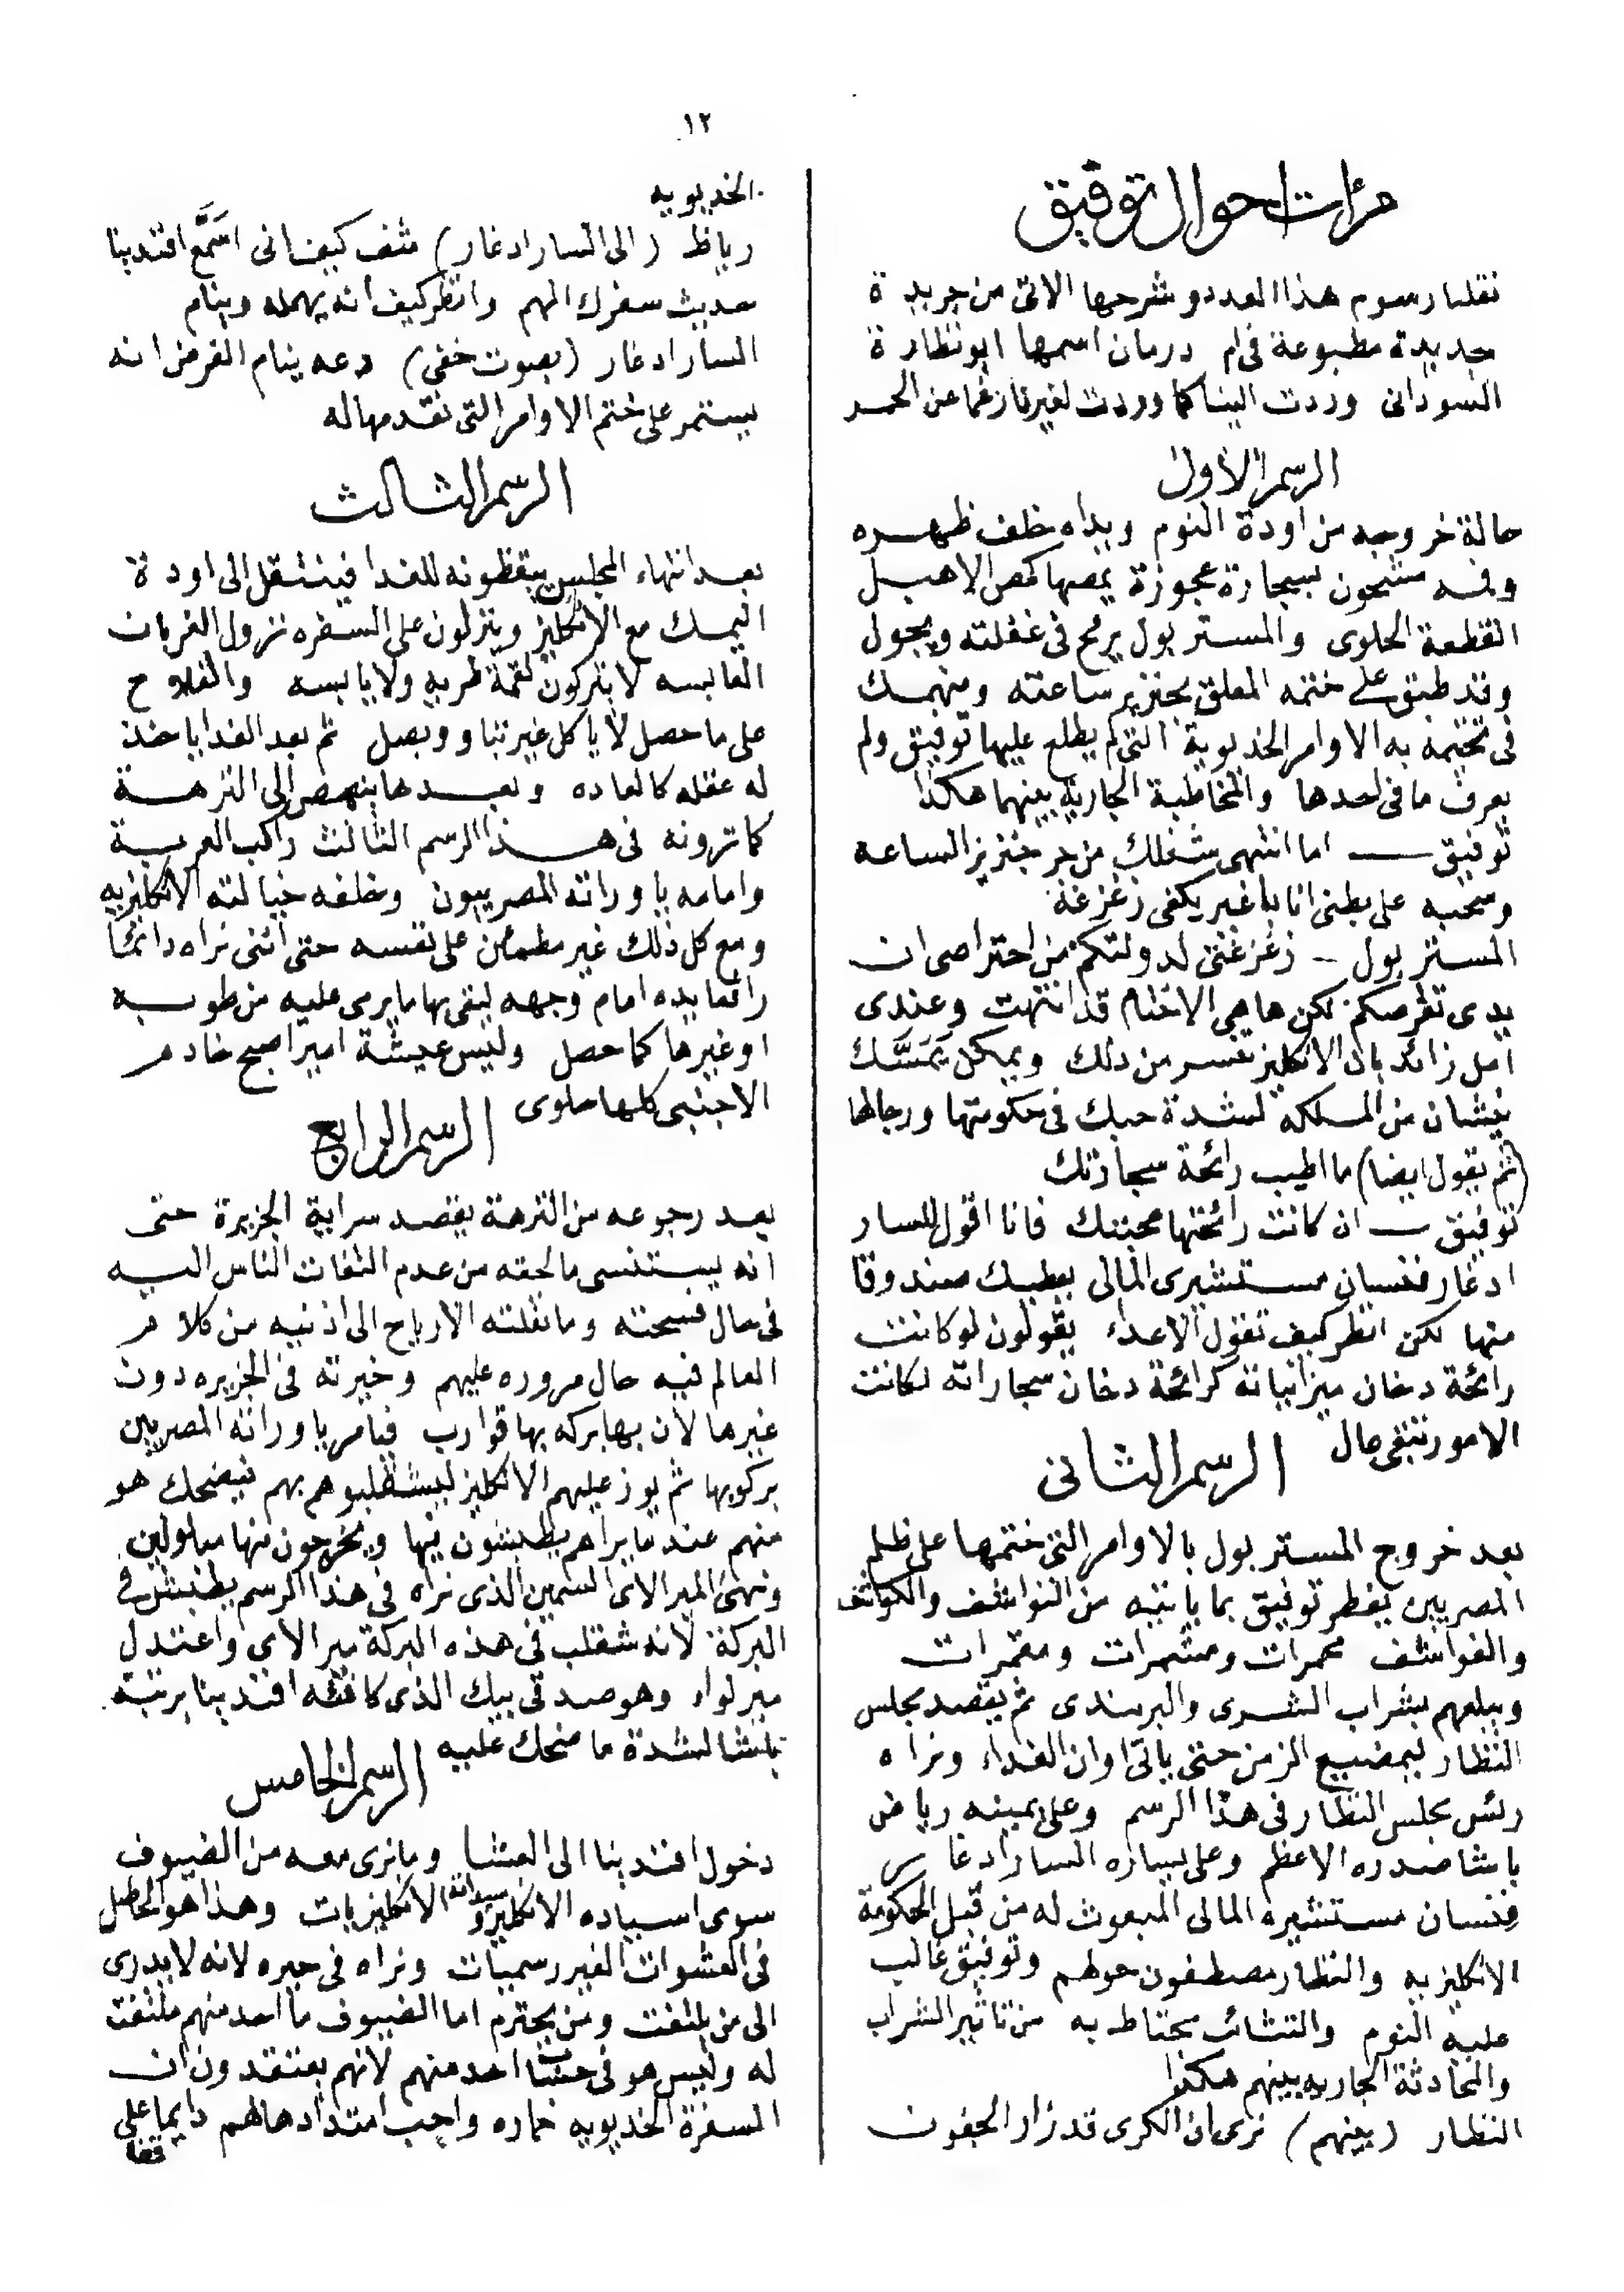 ١٢
مرات احوال توفيق
نقلنا رسوم هذا العدد و شرحها الاتى من جريدة
جديدة مطبوعة فى ام درمان اسمها ابو نظارة
السودانى وردت الينا كما وردت لغيرنا رغما عن الحصر
الرسم الاول
حالة خروجه من اودة النوم ويداه خلف ظهره
وفمه مشحون بسيجارة عجوزة يمصها كمص الاهبل
القطعة الحلوى والمستر بول يرمح فى غفلته ويجول
وقد طبق على ختمه المعلق بجنزير ساعته ومنهمك
فى تختيمه به الاوامر الخديوية التى لم يطلع عليها توفيق ولم
يعرف ما فى احدها والمخاطبة الجارية بينهما هكذا
توفيق — اما انتهى شغلك من جر جنزير الساعه
وسحبه على بطنى انا باغير يكفى زغزغة
المستر بول — زغزغتى لدولتكم من احتراصى ان
يدى تقرصكم لكن ها هى الاختام قد انتهت وعندى
امل زائد بان الانكليز تنسر من ذلك ويمكن تمسك
نيشان من الملكه لشدة حبك فى حكومتها ورجالها
(ثم يقول ايضا) ما اطيب رائحة سيجارتك
توفيق — ان كانت رائحتها عجبتك فانا اقول للسار
ادغار فنسان مستشيرى المالى يعطيك صندوقا
منها لكن انظر كيف تقول الاعداء يقولون لو كانت
رائحة دخان ميزانياته كرائحة دخان سجاراته لكانت
الامور تبقى عال
الرسم الثانى
بعد خروج المستر بول بالاوامر التى ختمها على ظلم
المصريين يفطر توفيق بما ياتيه من النواشف والكواشف
والفواشف محمرات ومشمرات ومقمرات
ويبلعهم بشراب الشرى والبرندى ثم يقصد مجلس
النظار ليمضيع الزمن حتى ياتى اوان الغداء ونراه
رئس مجلس النظار فى هذا الرسم وعلى يمينه رياض
باشا صدره الاعظم وعلى يساره السار ادغار
فنسان مستشيره المالى المبعوث له من قبل الحكومة
الانكليزيه والنظار مصطفون حولهم وتوفيق غالب
عليه النوم والتثائب محتاط به من تاثير الشراب
والمحادثة الجاريه بينهم هكذا
النظار (بينهم) نرى ان الكرى قد زار الجفون
الخديويه
رياظ (الى السار ادغار) شف كيف انى اسمع افندينا
حديث سفرك المهم وانظر كيف انه يهمله وينام
السار ادغار (بصوت خفى) دعه ينام الغرض انه
يستمر على ختم الاوامر التى نقدمها له
الرسم الثالث
بعد انتهاء المجلس يقظونه للغدا فينتقل الى اودة
اليمك مع الانكليز وينزلون على السفره نزول الغربان
العابسه لا يتركون لقمة طريه ولا يابسه والفلاح
على ما حصل لا ياكل غير نباو وبصل ثم بعد الغدا ياخذ
له عقله كالعاده وبعدها ينهض الى النزهة
كما ترونه فى هذا الرسم الثالث راكب العربية
وامامه ياوراته المصريون وخلفه خيالته الانكليزيه
ومع كل ذلك غير مطمئن على نفسه حتى اننى نراه دائما
رافعا يده امام وجهه ليقى بها ما يرمى عليه من طوبه
او غيرها كما حصل وليس عيشة امير اصبح خادم
الاجنبى كلها حلوى
الرسم الرابع
بعد رجوعه من النزهة يقصد سراية الجزيرة حتى
انه يستنسى ما لحقه من عدم التفات الناس اليه
فى حال فسحته وما نقلته الارياح الى اذنيه من كلام
العالم فيه حال مروره عليهم وخيرته فى الجزيره دون
غيرها لان بها بركه بها قوارب فيامر ياوراته المصريين
بركوبها ثم يوز عليهم الانكليز ليشقلبوهم بهم فيضحك هو
منهم عند ما يراهم يطبشون فيها ويخرجون منها مبلولين
ونهنئ الميرالاى السمين الذى نراه فى هذا الرسم يطبش فى
البركة لانه شقلب فى هذه البركة ميرالاى واعتدل
ميرلواء وهو صدقى بيك الذى كافئه افندينا برتبة
باشا لشدة ما ضحك عليه
الرسم الخامس
دخول افندينا الى العشا وما نرى معه من الضيوف
سوى اسياده الانكليز وسيداته الانكليزيات وهذا هو الحاصل
فى العشوات الغير رسميات ونراه فى حيره لانه لا يدرى
الى من يلتفت ومن يحترم اما الضيوف ما احد منهم ملتفت
له وليس هو فى حساب احد منهم لانهم يعتقدون ان
السفرة الخديويه خماره واجب امتدادها لهم دايما على
قفا